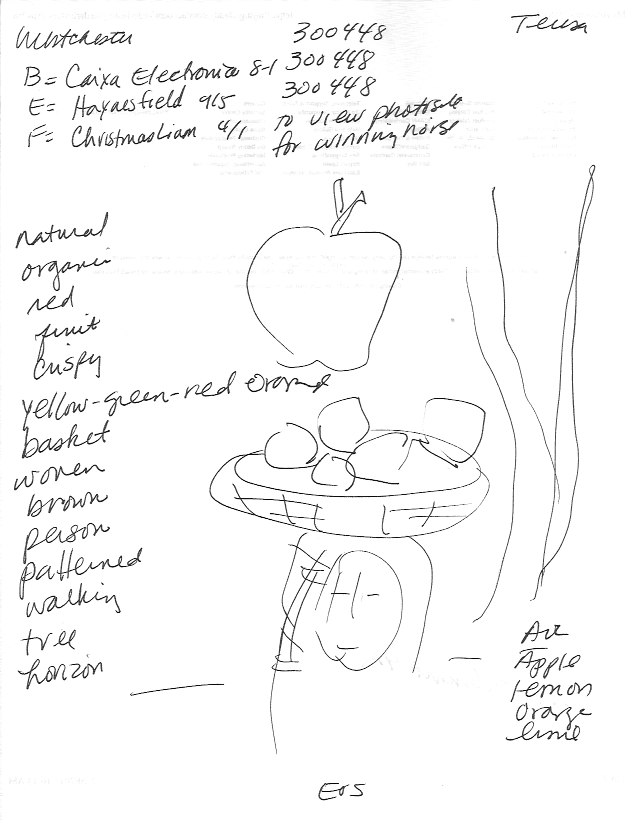 Westchester
Teresa
300448
B= Caixa Electronica 8-1 300448
E= Haynesfield 9/5 300448
F= Christmasliam 4/1 to view photosite
for winning horse
natural
organic
red
fruit
crispy
yellow-green-red orange
basket
woven
brown
person
patterned
walking
tree
horizon
Apple
lemon
orange
lime
EOS